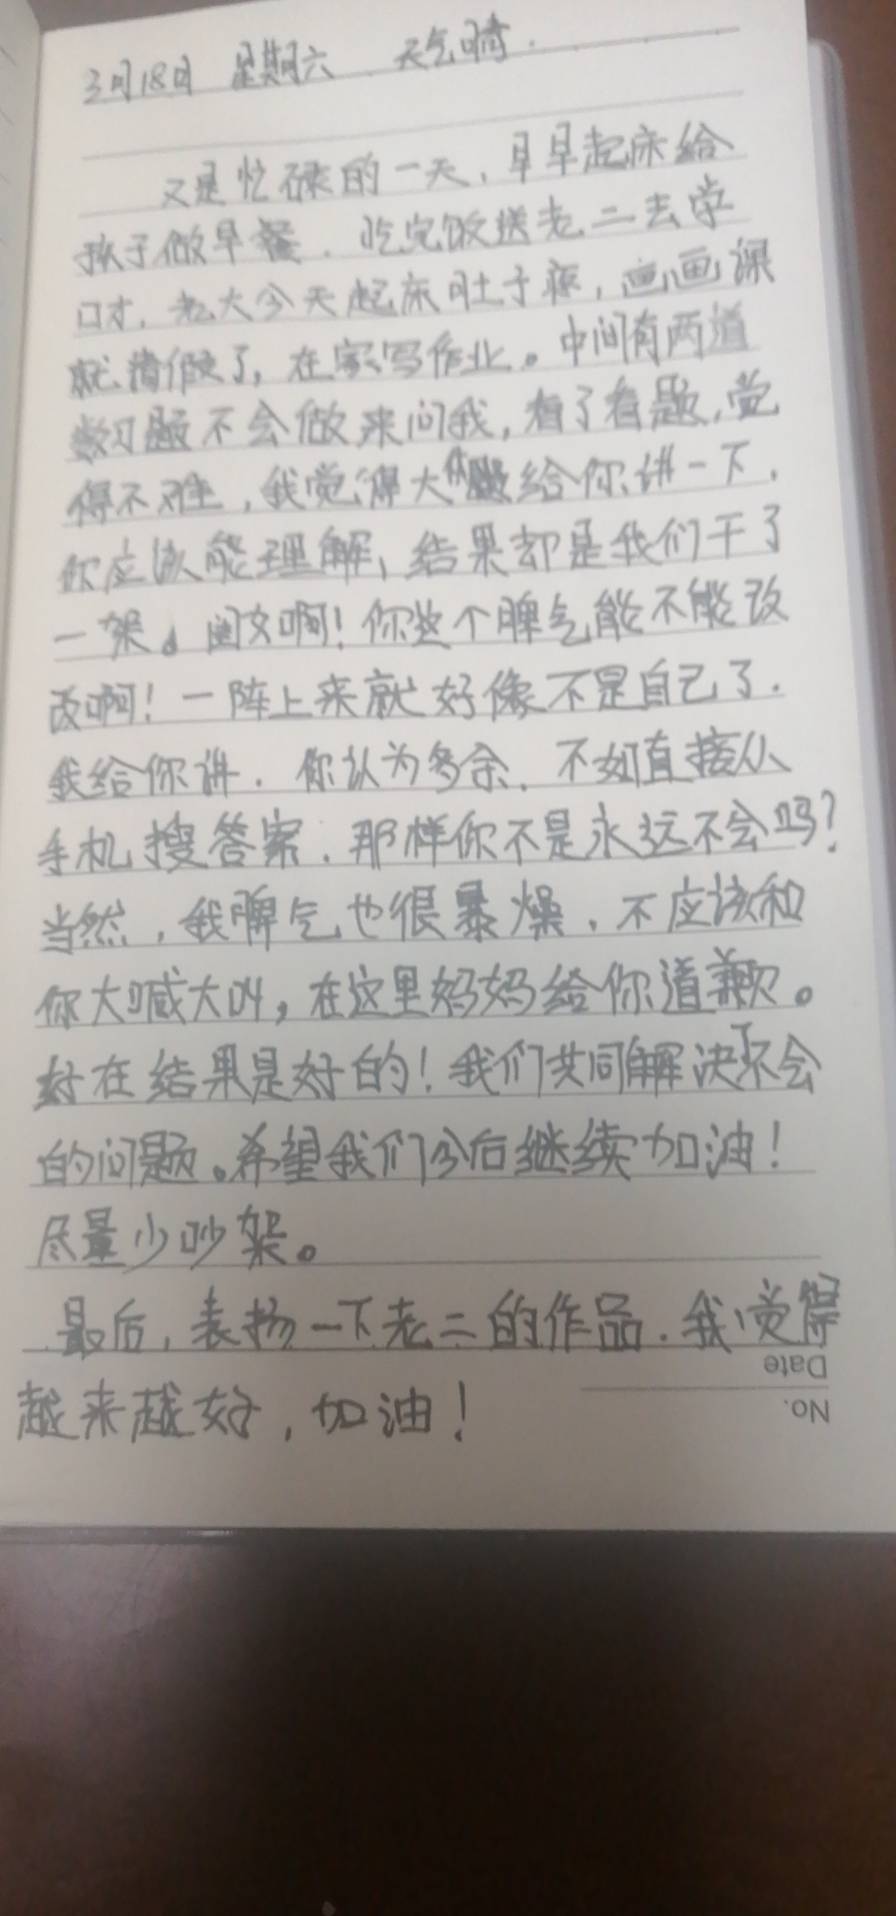 3月18日 星期六 天气晴.
又是忙碌的一天,早早起床给
孩子做早餐.吃完饭送老二去学
口才.老大今天起床肚子疼,画画课
就请假了,在家写作业。中间有两道
数习题不会做来问我,看了看题,觉
得不难,我觉得大体给你讲一下,
你应该能理解,结果却是我们干了
一架。闺女啊!你这个脾气能不能改
改啊!一阵上来就好像不是自己了.
我给你讲.你认为多余.不如直接从
手机搜答案.那样你不是永远不会吗?
当然,我脾气也很暴燥.不应该和
你大喊大叫,在这里妈妈给你道歉。
好在结果是好的!我们共同解决了不会
的问题。希望我们今后继续加油!
尽量少吵架。
最后,表扬一下老二的作品.我觉得
越来越好,加油!
Date
No.